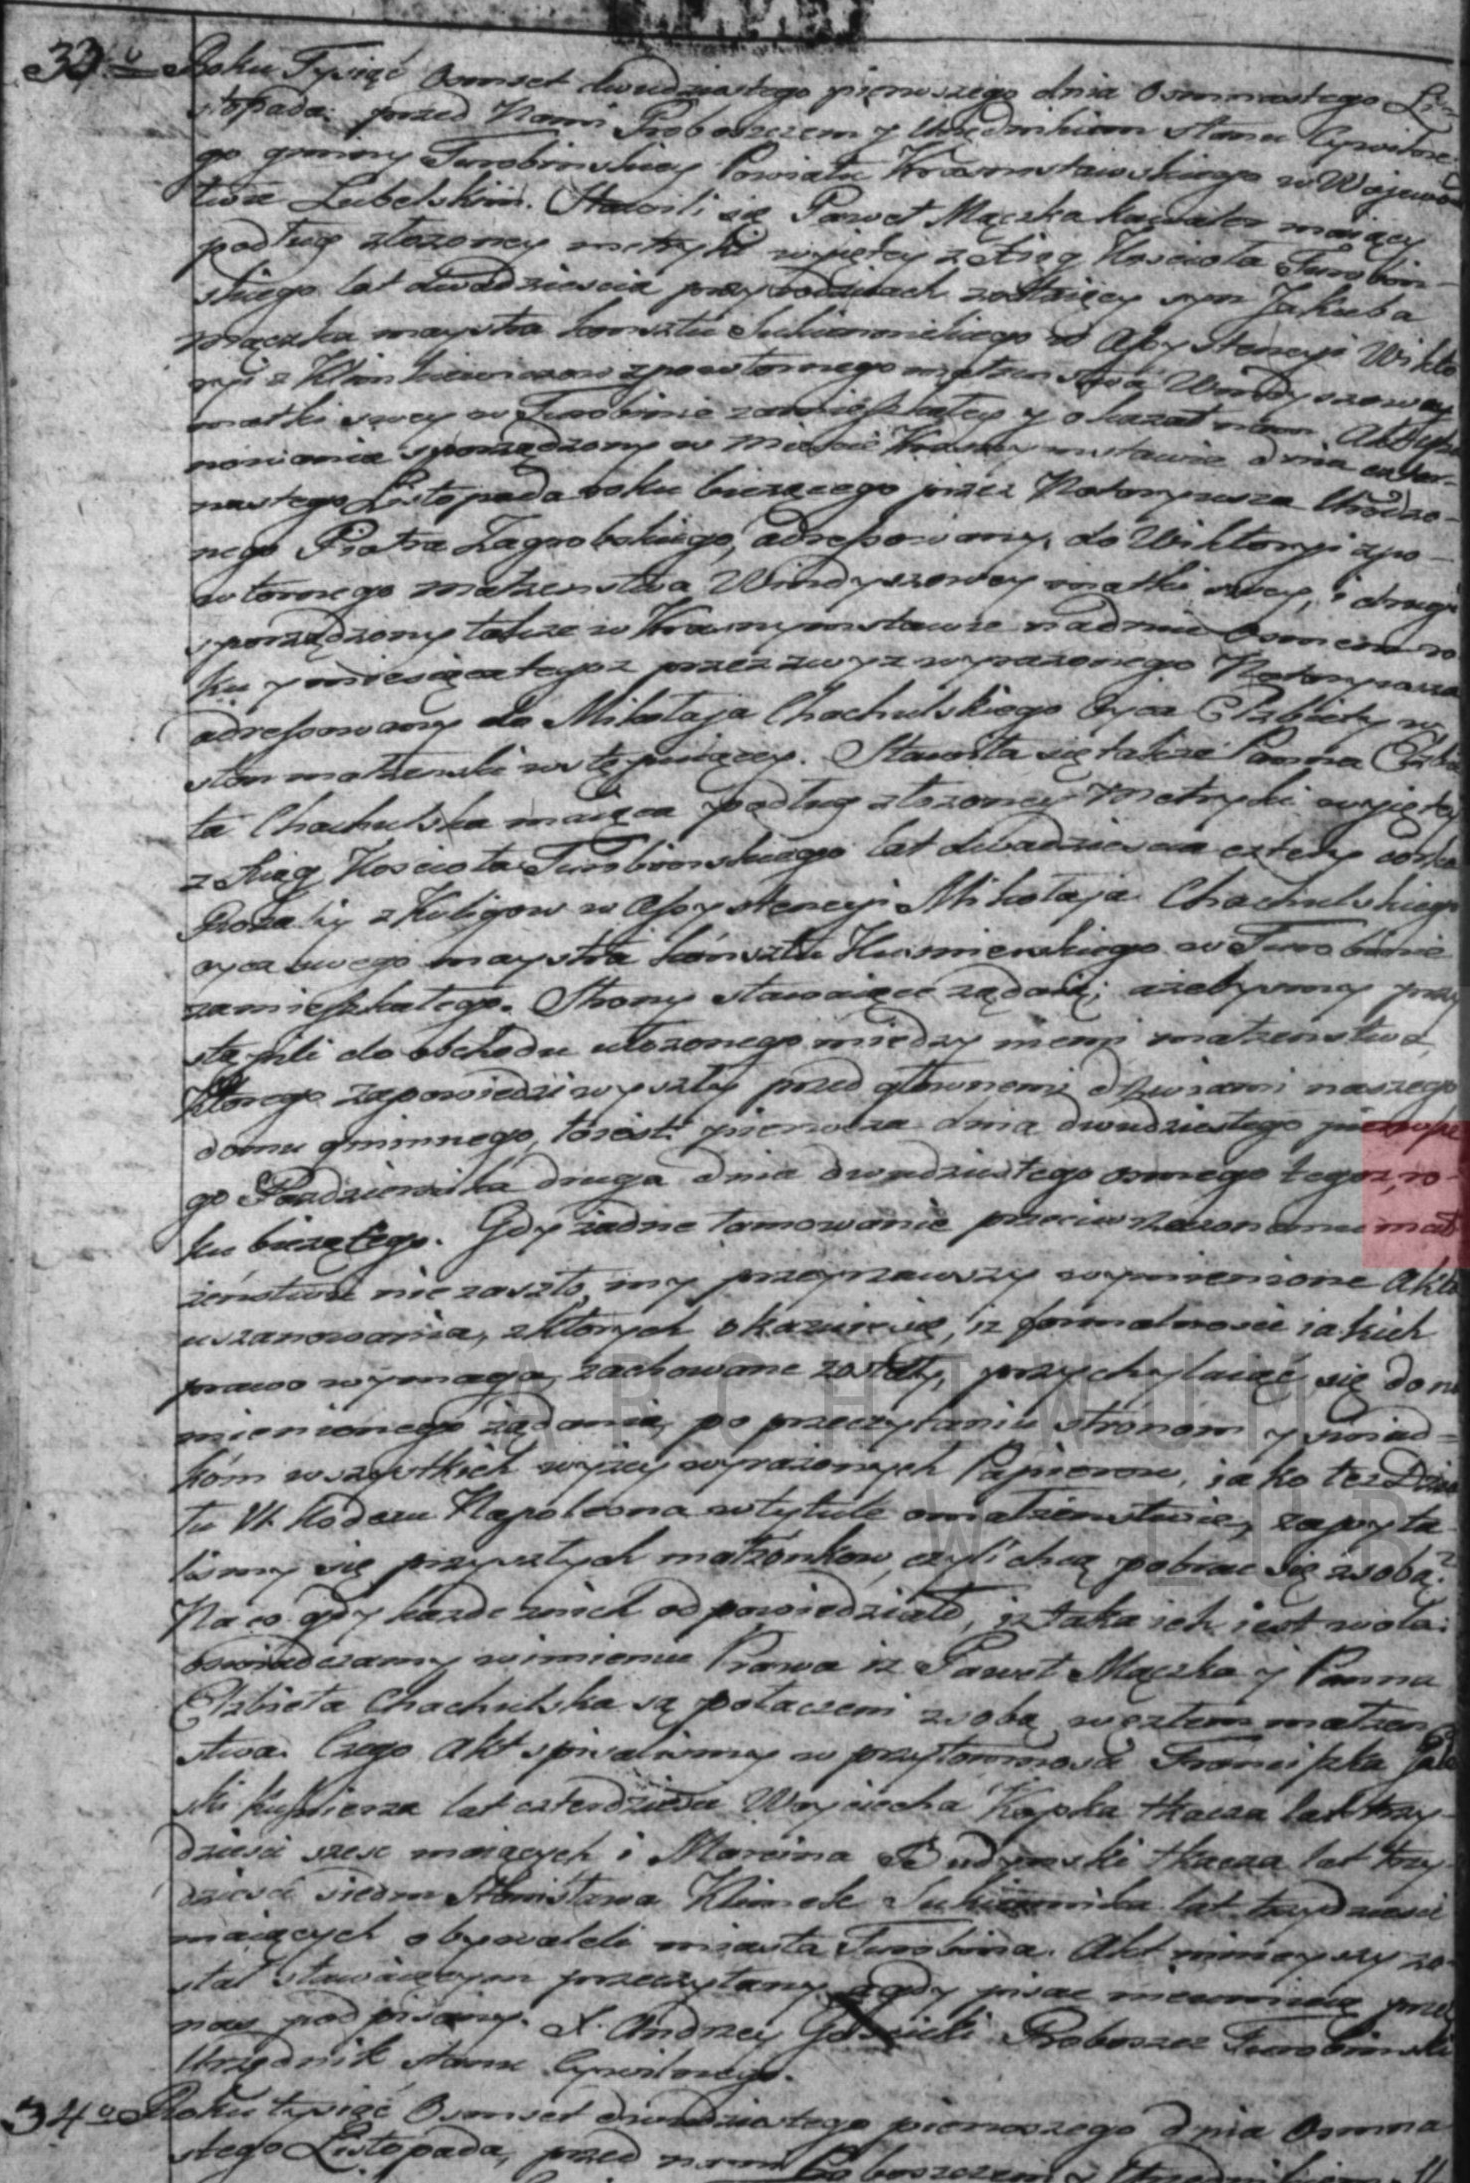 33o Roku Tysiąć Osmset dwudziestego pierwszego dnia Osmnastego Li-
stopada. przed Nami Proboszczem y Urzędnikiem stanu Cywilne
go gminy Turobinskiey Powiatu Krasnostawskiego w Wojewodz
twie Lubelskim. Stawili się Paweł Mączka kawaler maiący
podług złozoney metryki wyiętey z xiąg Koscioła Turobin-
skiego lat dwadziescia przy rodzicach zostaięcy syn Jakuba
Mączka maystra konsztu Sukienniczkiego w Assystencyi Wikto
ryi z Klimkiewiczow zpowtornego małzenstwa Windyszowey
matki swey w Turobinie zamieszkałey y okazał nam Akt usza
nowania sporządzony w Miescie Krasnymstawie dnia czter-
nastego Listopada roku biezącego przez Notaryusza Urodzo-
nego Piotra Zagrobskiego, adressowany, do Wiktoryi zpo-
wtornego małzenstwa Windyszowey matki swey, i drugi
sporządzony takze w Krasnymstawie na dniu osmem ro
ku y miesiąca tegoz przez zwyz wyrazonego Notaryusza
adressowany do Mikołaja Chachulskiego Oyca Elzbiety w
stan małzenski wstępuiącey. Stawiła się takze Panna Elzbie
ta Chachulska maiąca podług złozoney Metryki wyiętey
z xiąg Koscioła Turobinskiego lat dwadziescia cztery corka
Rozalij z Kuligow w Assystencyi Mikołaja Chachulskiego
oyca swego maystra konsztu Kusnierskiego w Turobinie
zamieszkałego. Strony stawaiące ządaią, azebysmy przy
stąpili do obchodu ułozonego miedzy niemi małzenstwa,
ktorego zapowiedzi wyszły przed głownemi drzwiami naszego
domu gminnego, toiest: pierwsza dnia dwudziestego pierwsze
go Pazdziernika druga dnia dwudziestego osmego tegoz, ro-
ku biezącego. Gdy zadne tamowanie przeciw rzeczonemu mał
zeństwu nie zaszło, my przeyrzawszy wymienione Akta
uszanowania, z ktorych okazuie się, iz formalnoscie iakich
prawo wymaga, zachowane zostały, przychylaiąc się do na
mienionego ządania, po przeczytaniu stronom y swiad=
kóm wszystkich wyzey wyrazonych Papierow, iako tez Dzia
łu VI. Kodexu Napoleona w tytule o małzenstwie, zapyta
lismy się przyszłych małzonkow, czyli chcą pobrac się z sobą?
Na co gdy kazde znich odpowiedziało, iz taka ich iest wola;
oswiadczamy w imieniu Prawa iz Paweł Mączka y Panna
Elzbieta Chachulska są połaczeni z sobą węzłem małzen
stwa. Czego Akt spisalismy w przytomnosci Franciszka
ski kusnierza lat czterdziesci Woyciecha Kapka tkacza lat trzy-
dziesci szesc maiących i Marcina Budzynski tkacza lat trzy
dziesci siedm Stanisława Klimek Sukiennika lat trzydziesci
maiących obywateli miasta Turobina. Akt ninieyszy zo-
stał stawaiącym przeczytany, a gdy pisac nieumieią przez
nas podpisany. X. Andrzey Proboszcz Turobinski
Urzędnik stanu Cywilnego.
34o Roku tysiąć Osmset dwudziestego pierwszego dnia Osmna
stego Listopada, przed nami Proboszczem y Urzędnikiem
ARCHIWUM
W LUB